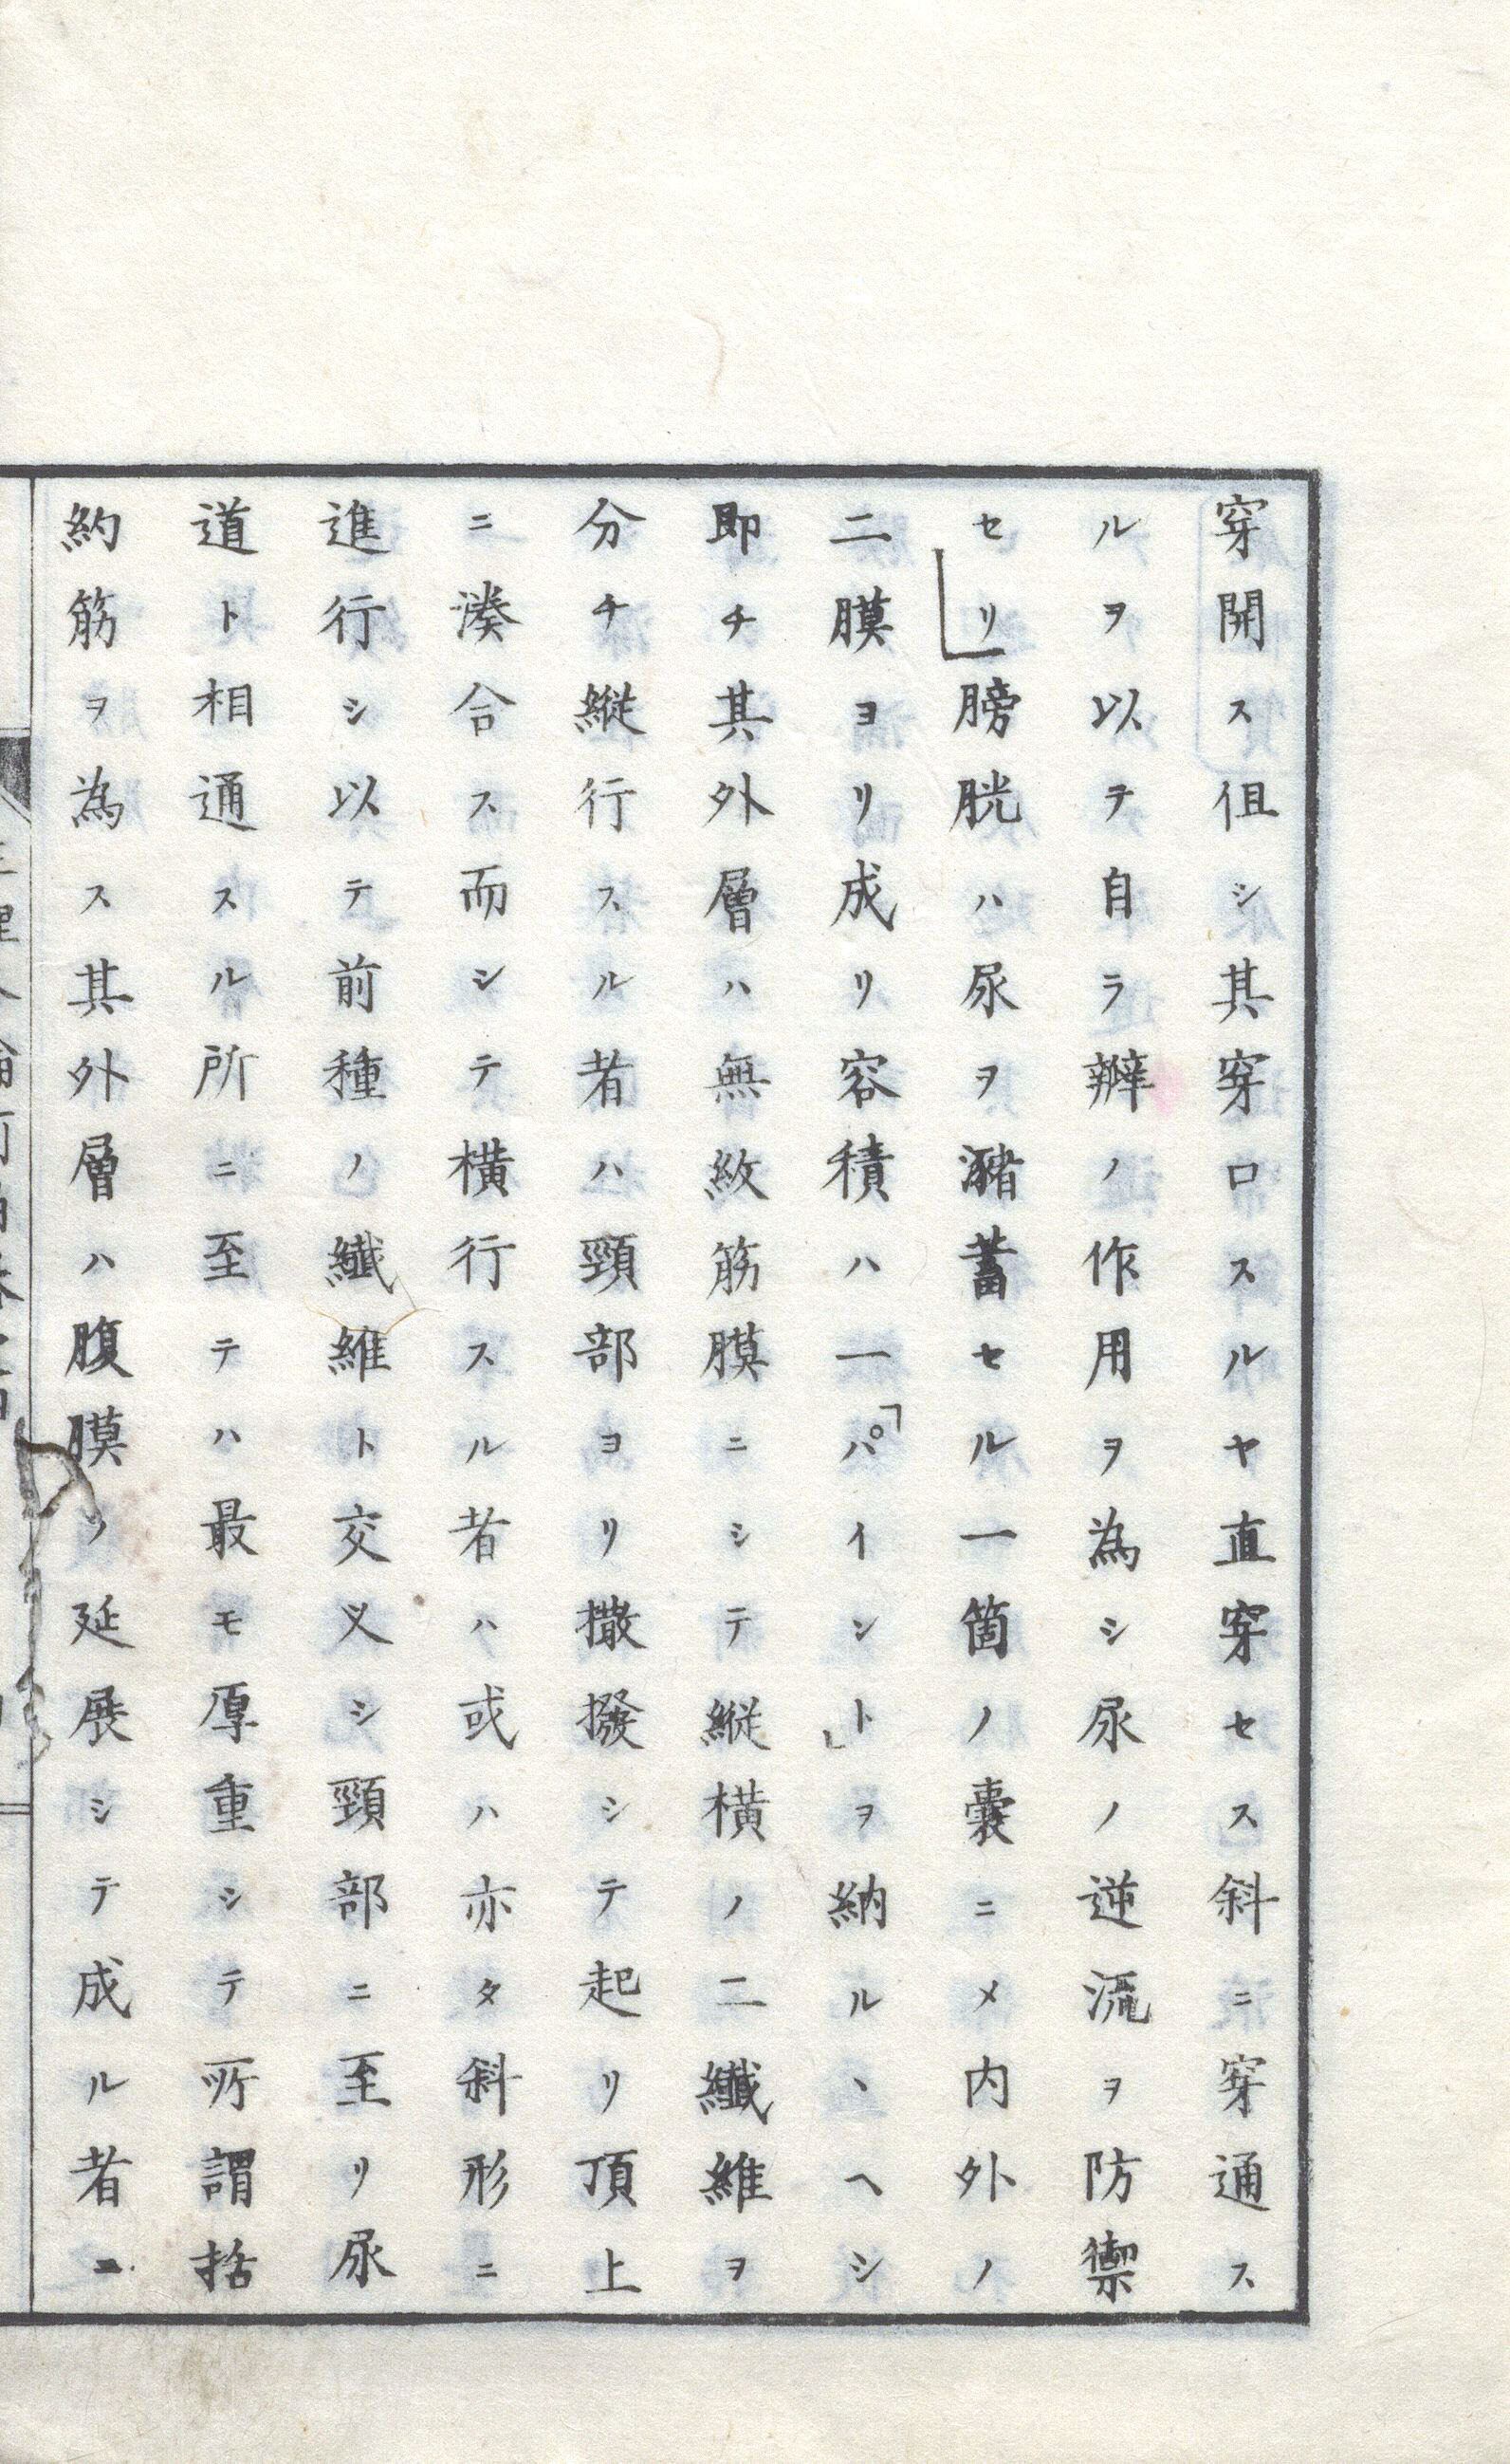 穿開ス伹シ其穿口スルヤ直穿セス斜ニ穿通ス
ルヲ以テ自ラ辧ノ作用ヲ為シ尿ノ逆流ヲ防禦
セリ膀胱ハ尿ヲ瀦蓄セル一箇ノ囊ニメ内外ノ
二膜ヨリ成リ容積ハ一「パイント」ヲ納ルヽヘシ
即チ其外層ハ無紋筋膜ニシテ縱横ノ二纎維ヲ
分チ縱行スル者ハ頸部ヨリ撒撥シテ起リ頂上
ニ湊合ス而シテ横行スル者ハ或ハ亦タ斜形ニ
進行シ以テ前種ノ纎維ト交叉シ頸部ニ至リ尿
道ト相通スル所ニ至テハ最モ厚重シテ所謂括
約筋ヲ為ス其外層ハ腹膜ノ延展シテ成ル者ニ